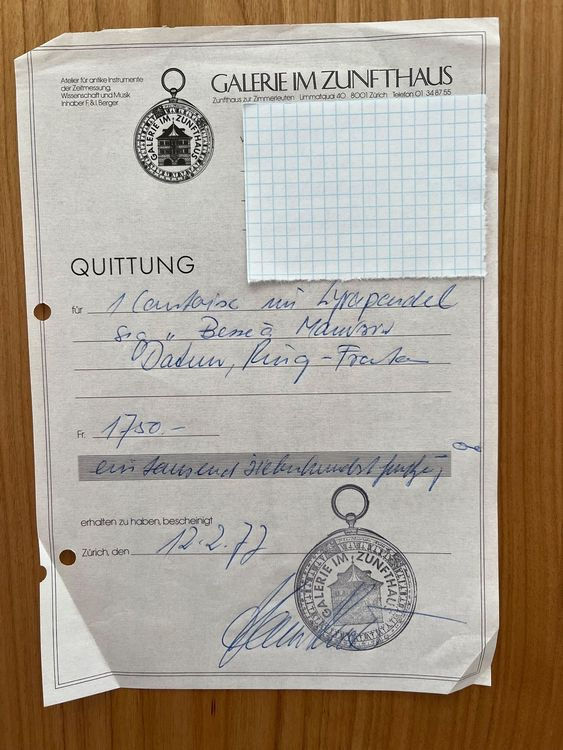 Atelier für antike Instrumente
der Zeitmessung,
Wissenschaft und Musik
Inhaber F. & I. Berger
GALERIE IM ZUNFTHAUS
GALERIE IM ZUNFTHAUS
Zunfthaus zur Zimmerleuten Limmatquai 40 8001 Zürich Telefon 01 34 87 55
QUITTUNG
für 1 Comtoise mit Lyrapendel
sig. Besse à
Datum, Ring-
Fr. 1750.-
ein tausend siebenhundert fünfzig
erhalten zu haben, bescheinigt
Zürich, den 12.2.77
GALERIE IM ZUNFTHAUS